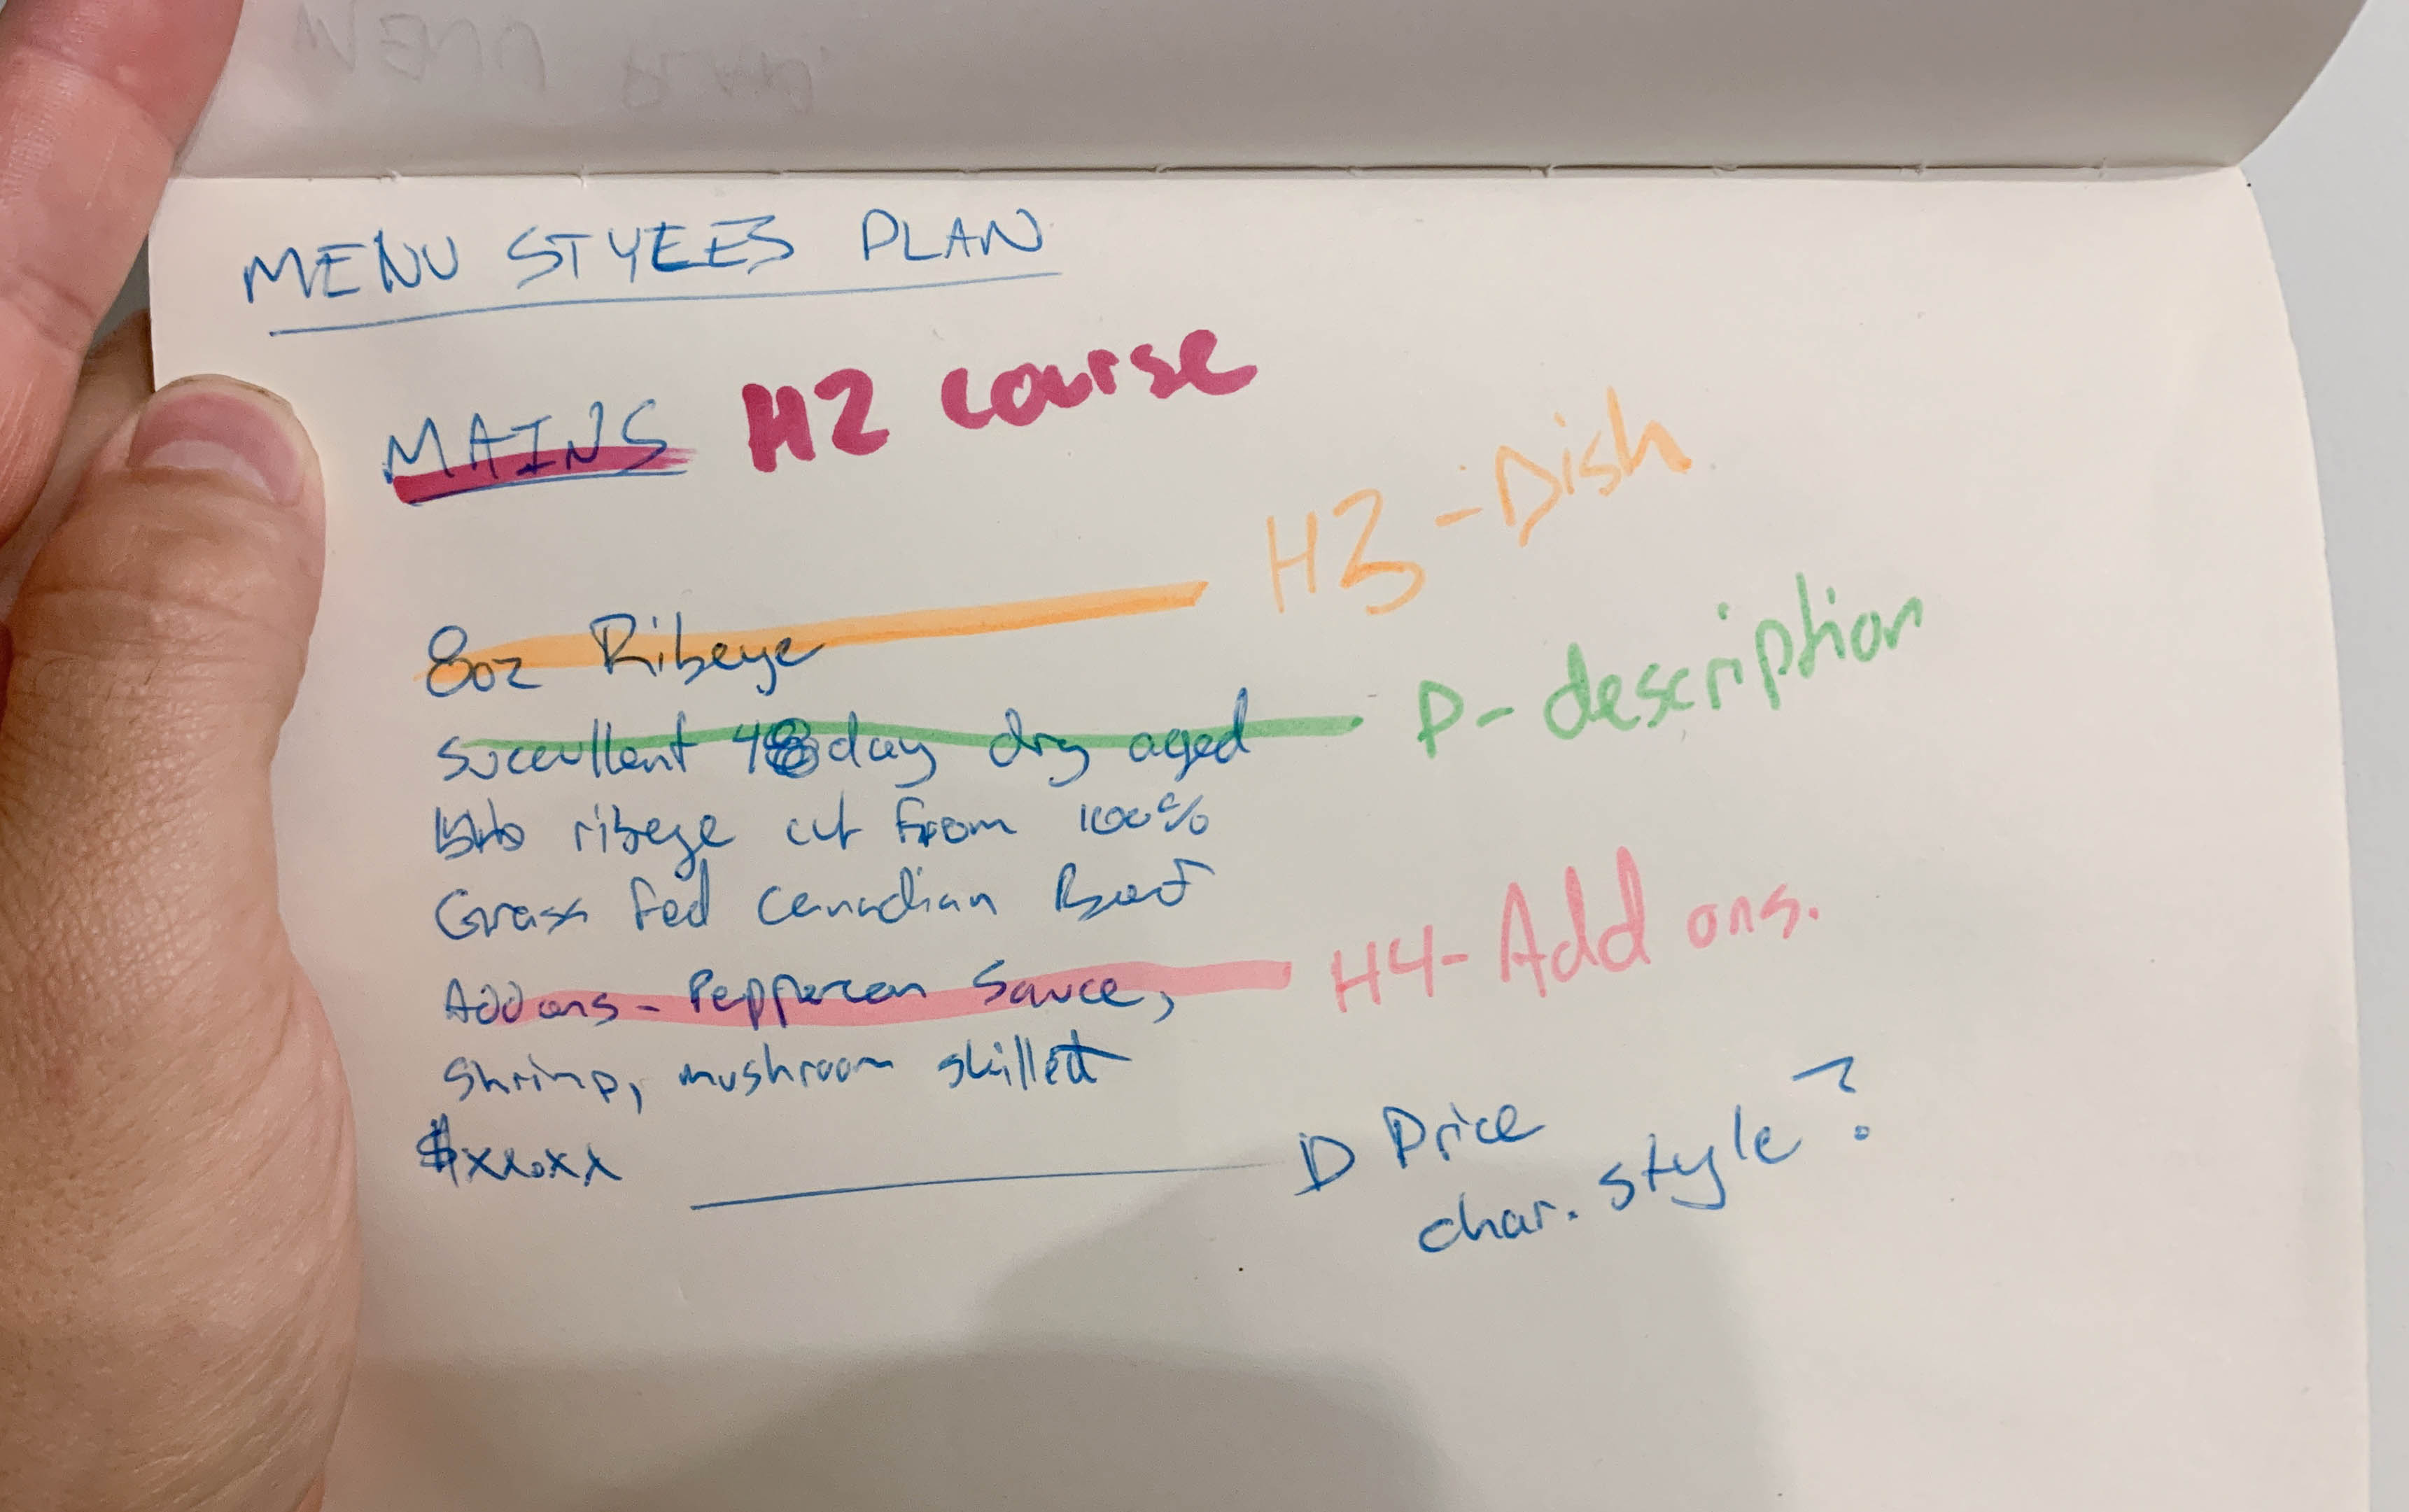 MENU PLAN
MENU STYLES PLAN
MAINS H2 course
8oz Ribeye H3 - Dish
Succullent 48 day dry aged P - description
ribeye cut from 100%
Grass fed Canadian Beef
Add ons - Peppercorn Sauce, H4 - Add ons.
Shrimp, mushroom skillet
$xx.xx D Price
char. style?